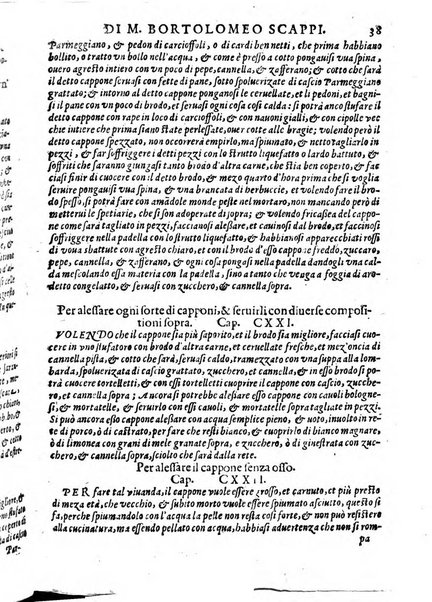 DI M. BORTOLOMEO SCAPPI. 38
Parmeggiano, & pedon di carcioffoli, o di cardi ben netti, che prima habbiano
bollito, o tratto vn bollo nell'acqua, & come è presso a cotto pongauisi vua spina,
ouero agresto intiero con vn poco di pepe, cannella, & zafferano; & cotto che sarà
il detto cappone con le cose sopradette seruasi caldo con fette di pane sotto
grattato; & intorno al detto cappone ponganosi le ceruellate, et li pedoni, et bagni-
si il pane con vn poco di brodo, et seruasi ogni cosa così calda: si potrà anco stufare il
detto cappone con rape in loco di carcioffoli, & con nauoni gialli, et con cipolle vec
chie intiere che prima siano state perlessate, ouer cotte alle bragie; volendo però il
detto cappone spezzato, non occorrerà empirlo, ma smembrarlo, & nettato tagliarlo in
pezzi, & far soffriggere i detti pezzi con lo strutto liquefatto o lardo battuto, &
soffritti che saranno giungasi tanto brodo d'altra carne, che stia ben coperto, & fac
ciasi finir di cuocere con il detto brodo, & mezo quarto d'hora prima che si voglia
seruire ponganuisi vua spina, & vna brancata di herbuccie, et volendo fare il bro
do spesso, si potrà far con amãdole monde peste nel mortaro, non mancando però di
metterui le spetiarie, che si son adoperate di sopra; & volendo fricasea del cappo
ne come sarà tagliato in pezzi, facciasi alessare, et cauinosi dal brodo, et faccinosi
soffriggere nella padella con lo strutto liquefatto, & habbianosi apparecchiati rossi
di voua sbattute con agresto chiaro, et con il brodo d'esso cappone freddo, zuccaro,
pepe, cannella, & zafferano, & ogni cosa pongasi nella padella dandogli vna cal
da mescolando essa materia con la padella, sino a tanto che venga a foggia di bro-
detto congelato, & seruasi con zucchero, & cannella sopra.
Per alessare ogni sorte di capponi, & seruirli con diuerse composi-
tioni sopra. Cap. CXXI.
VOLENDO che il cappone sia più saporito, et il brodo sia migliore, facciasi cuoce
re in vno stufatoro con brodo d'altra carne, et ceruellate fresche, et mez'oncia di
cannella pista, & cotto che sarà seruasi caldo, tramezzato con vna suppa alla lom-
barda, spoluerizata di cascio grattato, zucchero, et cannella, & in esso brodo si po
trà cuocere tortelletti, & con essi tortelletti cuoprire il cappone con cascio, zucche-
ro, et cannella sopra; Ancora si potrebbe alessare esso cappone con cauoli bologne-
si, & mortatelle, & seruirlo con essi cauoli, & mortatelle sopra tagliate in pezzi.
Si può ancora esso cappone alessare con acqua semplice pieno, & uoto, inuolto in re-
te di porco, ò di castrato, per far che resti bianco, & cuoprirlo di bianco magnare,
ò di limonea con grani di mele granate sopra, e zucchero, ò di ginestrata con zuc-
chero, & cannella sopra, sciolto che sarà dalla rete.
Per alessare il cappone senza osso.
Cap. CXXII.
PER fare tal viuanda, il cappone vuole essere grosso, et carnuto, et più presto
di meza età, che vecchio, & subito morto vuole essere spiumato asciutto, & questo
si fa, perche spiumandolo con l'acqua la pelle non resta così forte, & non può resistere
alla cucinatura, ma essendo pellato con acqua, habbiasi aduertenza che non si rom-
pa